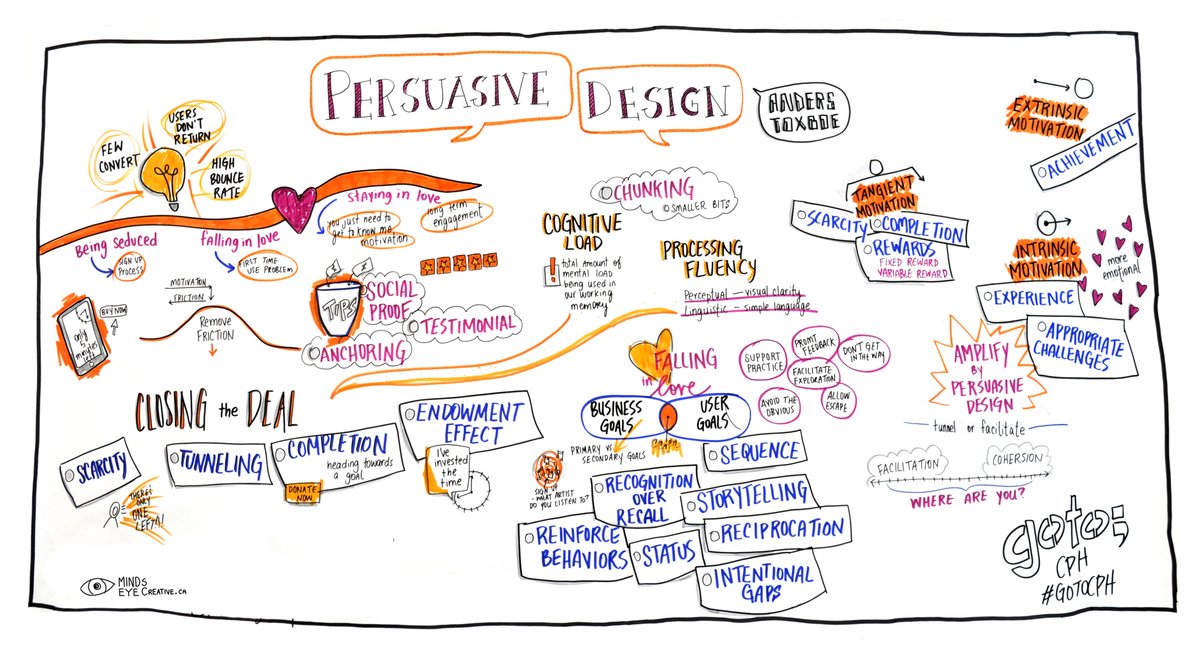 PERSUASIVE DESIGN
ANDERS
TOXBOE
FEW
CONVERT
USERS
DON'T
RETURN
HIGH
BOUNCE
RATE
Being seduced
SIGN UP
PROCESS
falling in love
FIRST TIME
USE PROBLEM
staying in love
you just need to
get to know me
motivation
long term
engagement
MOTIVATION
FRICTION
Remove
FRICTION
BUY NOW
only
5
minutes
TIPS
SOCIAL
PROOF
TESTIMONIAL
ANCHORING
CLOSING the DEAL
SCARCITY
THERES
ONLY
ONE
LEFT!
TUNNELING
COMPLETION
heading towards
a goal
DONATE
NOW
ENDOWMENT
EFFECT
I've
invested
the
time
CHUNKING
SMALLER BITS
COGNITIVE
LOAD
! total amount of
mental load
being used in
our working
memory
PROCESSING
FLUENCY
Perceptual — visual clarity
Linguistic — simple language
FALLING
in love
BUSINESS
GOALS
USER
GOALS
PRIMARY vs
SECONDARY GOALS
SIGN UP
- WHAT ARTIST
DO YOU LISTEN TO?
SUPPORT
PRACTICE
PROMT
FEEDBACK
DON'T GET
IN THE WAY
FACILITATE
EXPLORATION
AVOID THE
OBVIOUS
ALLOW
ESCAPE
SEQUENCE
RECOGNITION
OVER
RECALL
STORYTELLING
REINFORCE
BEHAVIORS
STATUS
RECIPROCATION
INTENTIONAL
GAPS
TANGIENT
MOTIVATION
SCARCITY
COMPLETION
REWARDS
FIXED REWARD
VARIABLE REWARD
EXTRINSIC
MOTIVATION
ACHIEVEMENT
INTRINSIC
MOTIVATION
more
emotional
EXPERIENCE
APPROPRIATE
CHALLENGES
AMPLIFY
BY
PERSUASIVE
DESIGN
tunnel or facilitate
FACILITATION
COHERSION
WHERE ARE YOU?
goto;
CPH
#GOTOCPH
MINDs
EYE CREATIVE.CA